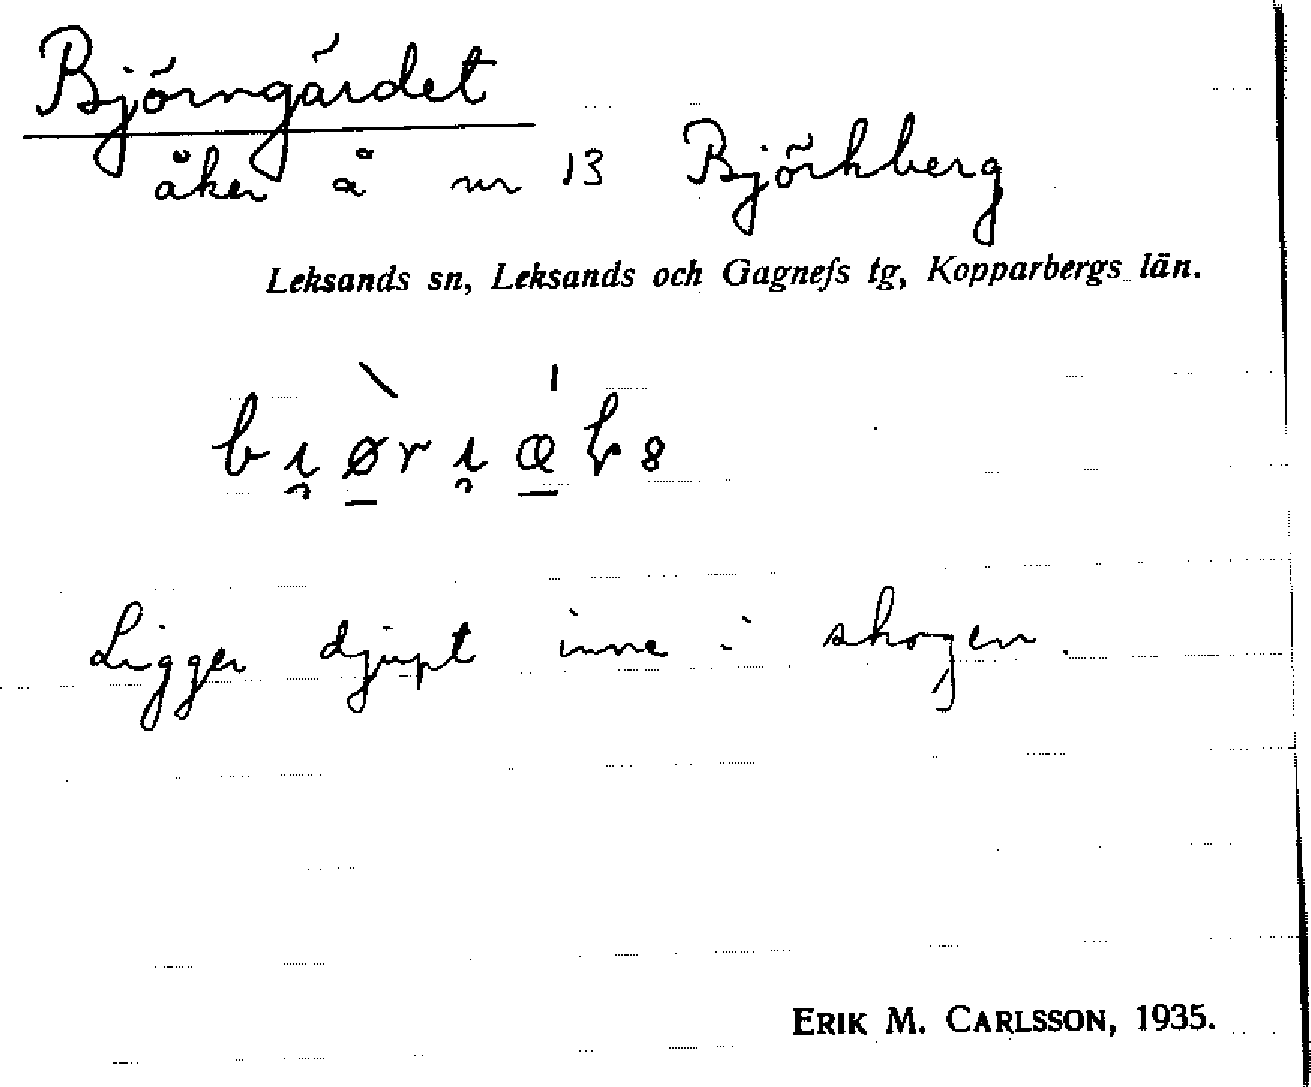 Björngärdet
åker å nr 13 Björkberg
Leksands sn, Leksands och Gagnefs tg, Kopparbergs län.
Ligger djupt inne i skogen.
ERIK M. CARLSSON, 1935.